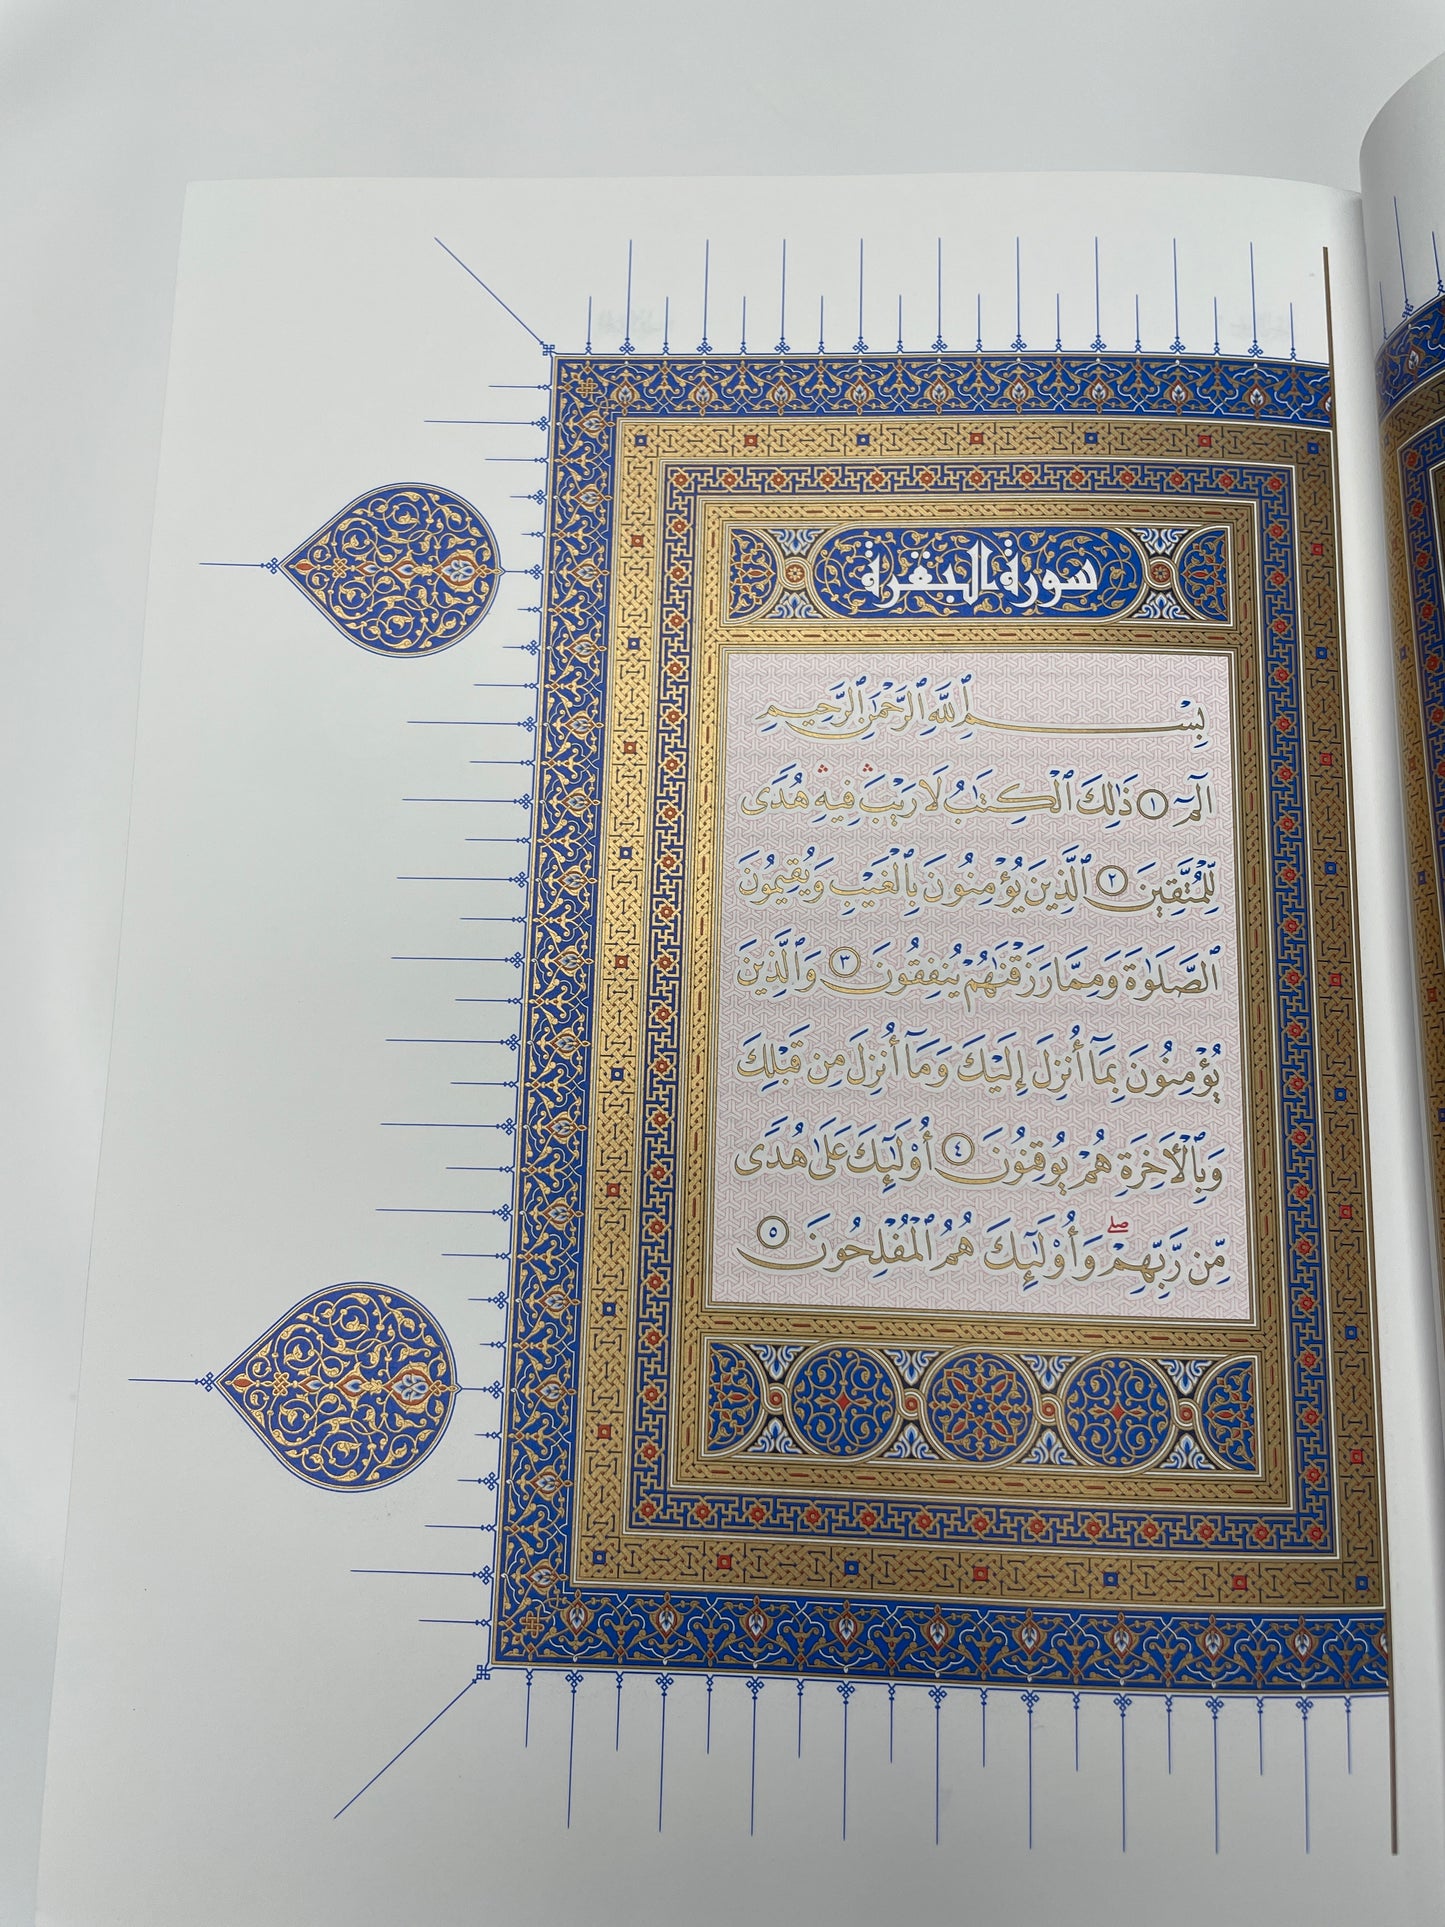 سورة البقرة
بِسْمِ ٱللَّهِ ٱلرَّحْمَٰنِ ٱلرَّحِيمِ
الٓمٓ ١ ذَٰلِكَ ٱلْكِتَٰبُ لَا رَيْبَ ۛ فِيهِ ۛ هُدًى
لِّلْمُتَّقِينَ ٢ ٱلَّذِينَ يُؤْمِنُونَ بِٱلْغَيْبِ وَيُقِيمُونَ
ٱلصَّلَوٰةَ وَمِمَّا رَزَقْنَٰهُمْ يُنفِقُونَ ٣ وَٱلَّذِينَ
يُؤْمِنُونَ بِمَآ أُنزِلَ إِلَيْكَ وَمَآ أُنزِلَ مِن قَبْلِكَ
وَبِٱلْأَخِرَةِ هُمْ يُوقِنُونَ ٤ أُو۟لَٰٓئِكَ عَلَىٰ هُدًى
مِّن رَّبِّهِمْ ۖ وَأُو۟لَٰٓئِكَ هُمُ ٱلْمُفْلِحُونَ ٥